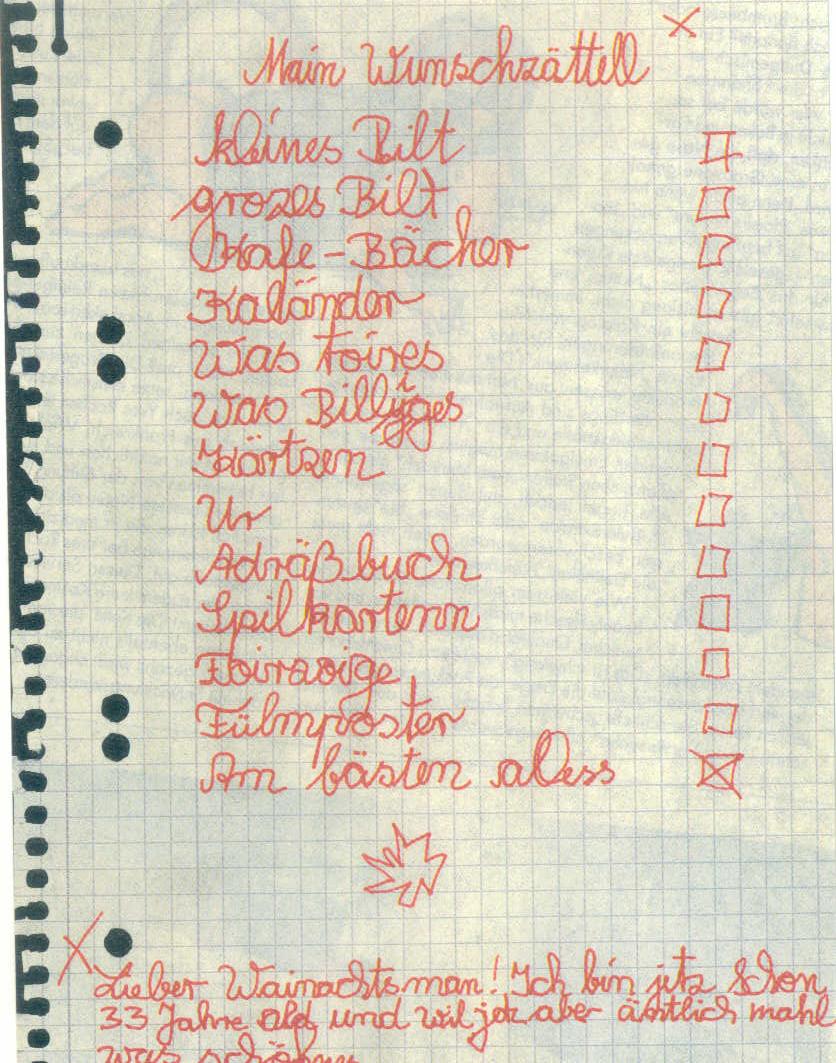 Main Wunschzättell
kleines Bilt
grozes Bilt
Kafe-Bächer
Kaländer
Was toires
Was Billiges
Kärtzen
Ur
Adräßbuch
Spilkartenn
Foirzoige
Fülmposter
Am bästen aless
Lieber Wainachtsman! Ich bin jetz schon
33 Jahre ald und wil jetz aber äntlich mahl
was schönes